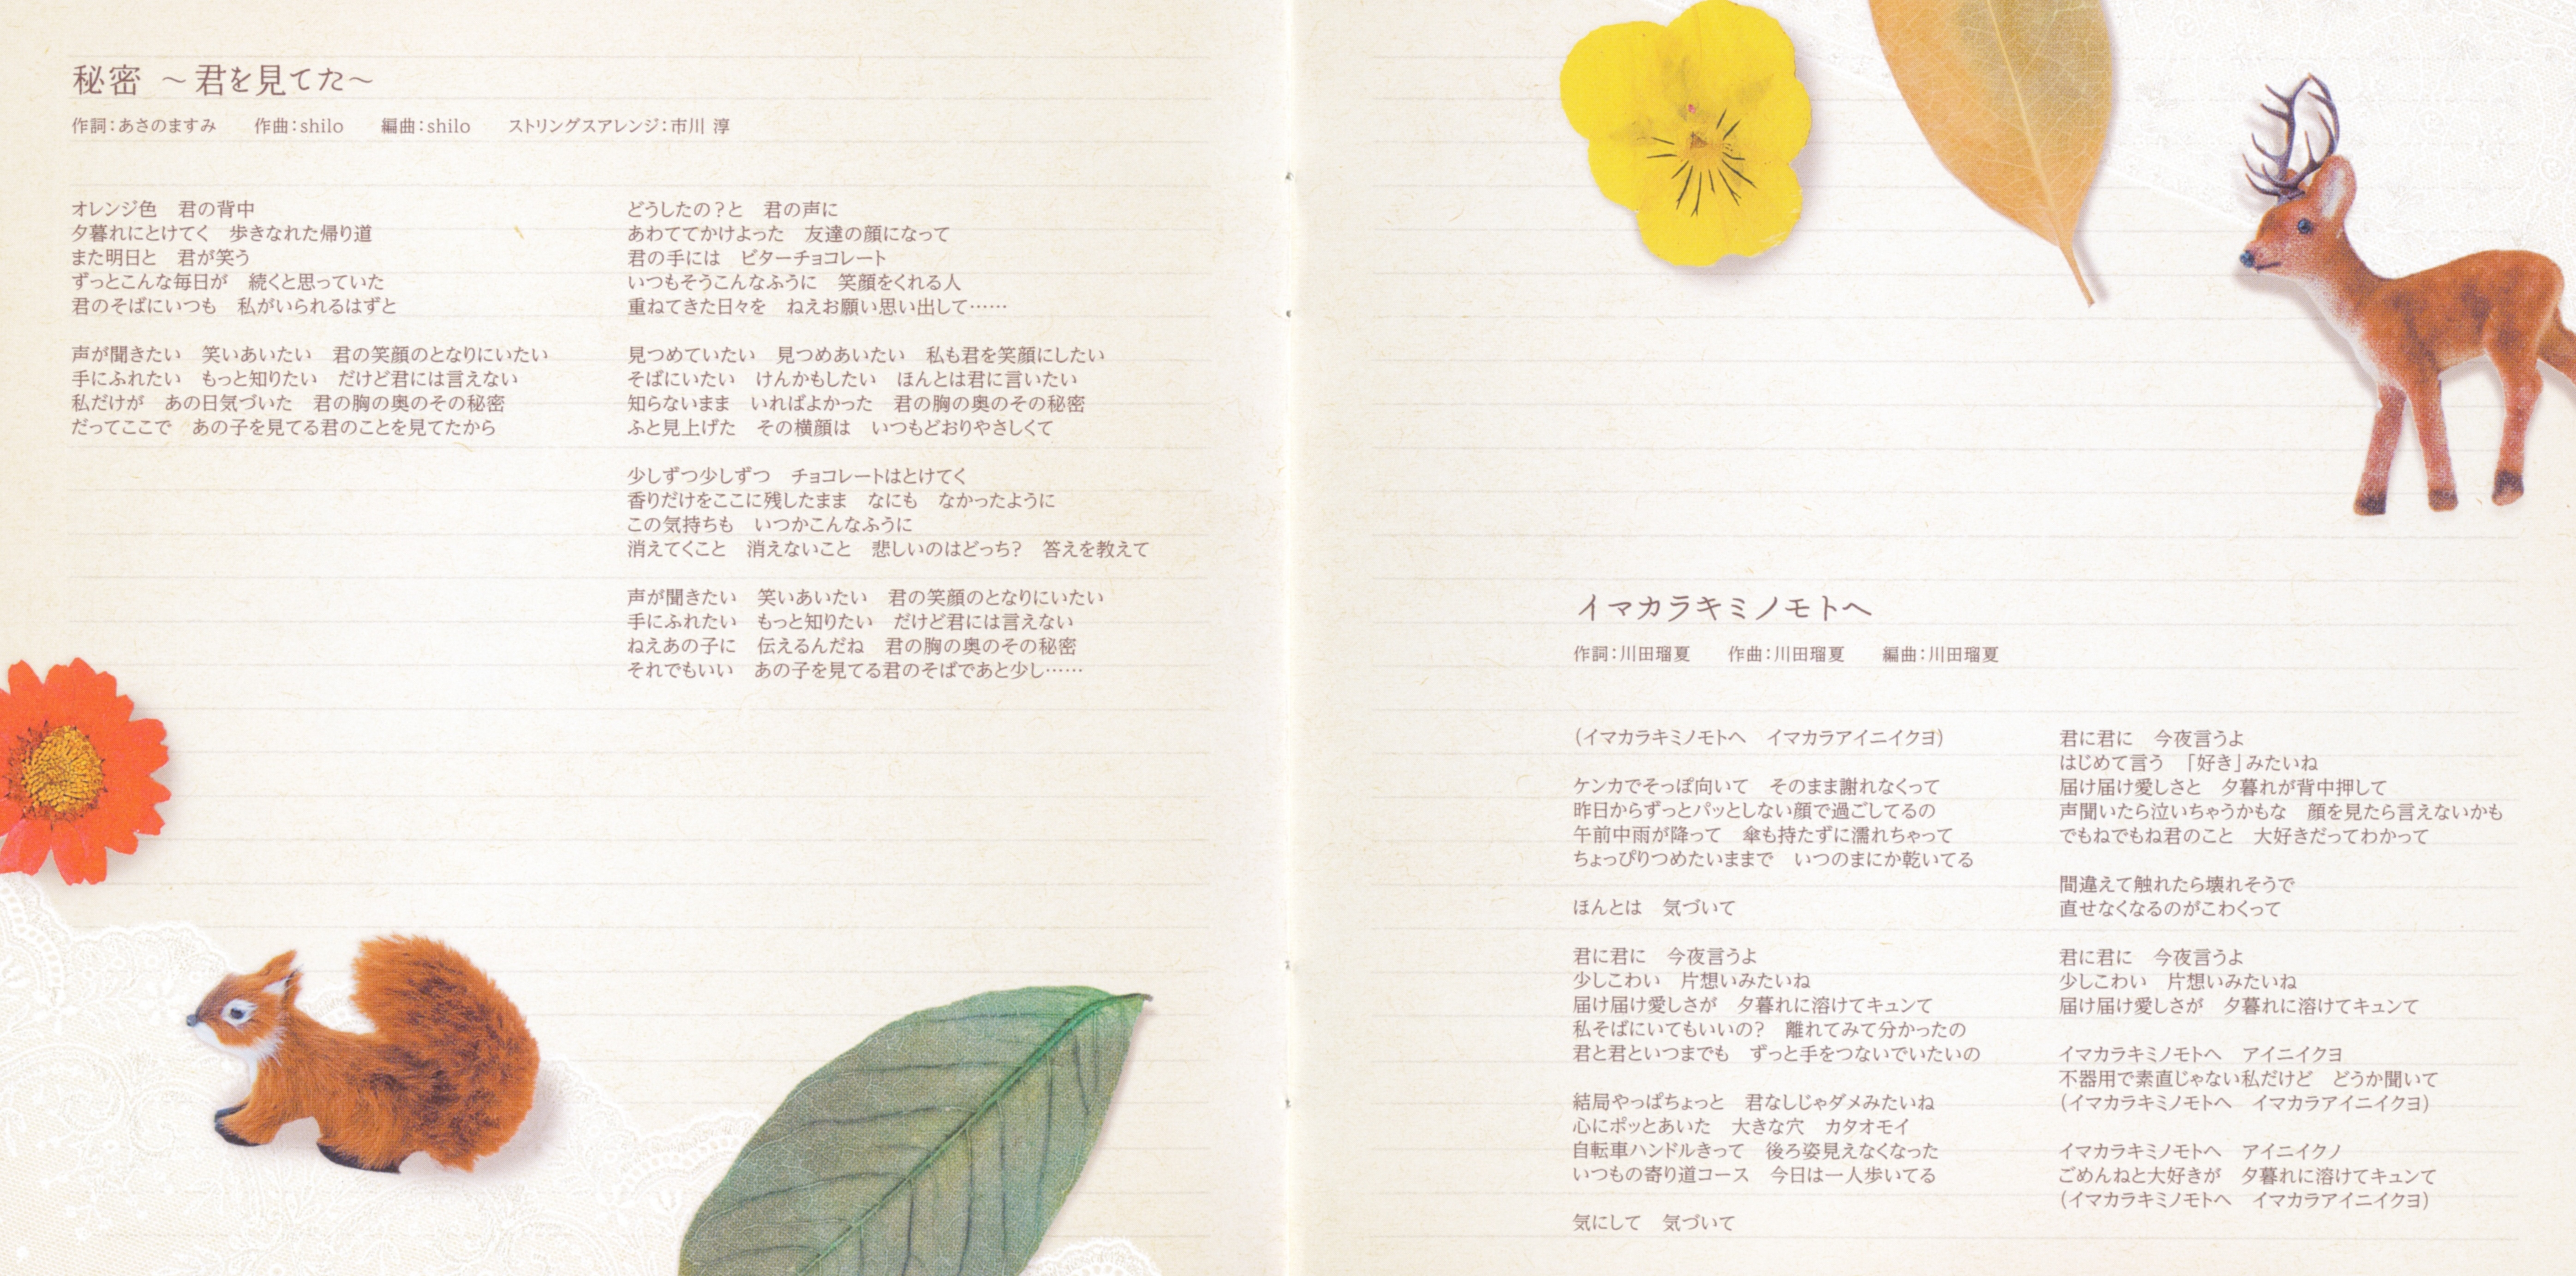 秘密 ～君を見てた～
作詞：あさのますみ　作曲：shilo　編曲：shilo　ストリングスアレンジ：市川 淳
オレンジ色　君の背中
夕暮れにとけてく　歩きなれた帰り道
また明日と　君が笑う
ずっとこんな毎日が　続くと思っていた
君のそばにいつも　私がいられるはずと
声が聞きたい　笑いあいたい　君の笑顔のとなりにいたい
手にふれたい　もっと知りたい　だけど君には言えない
私だけが　あの日気づいた　君の胸の奥のその秘密
だってここで　あの子を見てる君のことを見てたから
どうしたの？と　君の声に
あわててかけよった　友達の顔になって
君の手には　ビターチョコレート
いつもそうこんなふうに　笑顔をくれる人
重ねてきた日々を　ねえお願い思い出して……
見つめていたい　見つめあいたい　私も君を笑顔にしたい
そばにいたい　けんかもしたい　ほんとは君に言いたい
知らないまま　いればよかった　君の胸の奥のその秘密
ふと見上げた　その横顔は　いつもどおりやさしくて
少しずつ少しずつ　チョコレートはとけてく
香りだけをここに残したまま　なにも　なかったように
この気持ちも　いつかこんなふうに
消えてくこと　消えないこと　悲しいのはどっち？　答えを教えて
声が聞きたい　笑いあいたい　君の笑顔のとなりにいたい
手にふれたい　もっと知りたい　だけど君には言えない
ねえあの子に　伝えるんだね　君の胸の奥のその秘密
それでもいい　あの子を見てる君のそばであと少し……
イマカラキミノモトへ
作詞：川田瑠夏　作曲：川田瑠夏　編曲：川田瑠夏
（イマカラキミノモトへ　イマカラアイニイクヨ）
ケンカでそっぽ向いて　そのまま謝れなくって
昨日からずっとパッとしない顔で過ごしてるの
午前中雨が降って　傘も持たずに濡れちゃって
ちょっぴりつめたいままで　いつのまにか乾いてる
ほんとは　気づいて
君に君に　今夜言うよ
少しこわい　片想いみたいね
届け届け愛しさが　夕暮れに溶けてキュンて
私そばにいてもいいの？　離れてみて分かったの
君と君といつまでも　ずっと手をつないでいたいの
結局やっぱちょっと　君なしじゃダメみたいね
心にポッとあいた　大きな穴　カタオモイ
自転車ハンドルきって　後ろ姿見えなくなった
いつもの寄り道コース　今日は一人歩いてる
気にして　気づいて
君に君に　今夜言うよ
はじめて言う　「好き」みたいね
届け届け愛しさと　夕暮れが背中押して
声聞いたら泣いちゃうかもな　顔を見たら言えないかも
でもねでもね君のこと　大好きだってわかって
間違えて触れたら壊れそうで
直せなくなるのがこわくって
君に君に　今夜言うよ
少しこわい　片想いみたいね
届け届け愛しさが　夕暮れに溶けてキュンて
イマカラキミノモトへ　アイニイクヨ
不器用で素直じゃない私だけど　どうか聞いて
（イマカラキミノモトへ　イマカラアイニイクヨ）
イマカラキミノモトへ　アイニイクノ
ごめんねと大好きが　夕暮れに溶けてキュンて
（イマカラキミノモトへ　イマカラアイニイクヨ）